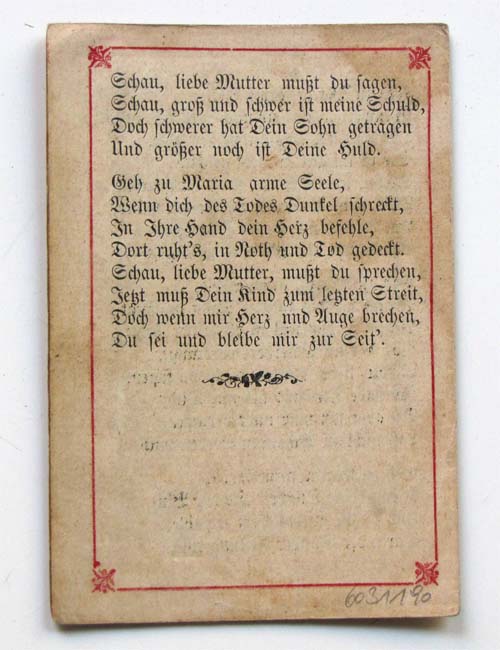 Schau, liebe Mutter mußt du sagen,
Schau, groß und schwer ist meine Schuld,
Doch schwerer hat Dein Sohn getragen
Und größer noch ist Deine Huld.
Geh zu Maria arme Seele,
Wenn dich des Todes Dunkel schreckt,
In Ihre Hand dein Herz befehle,
Dort ruht's, in Noth und Tod gedeckt.
Schau, liebe Mutter, mußt du sprechen,
Jetzt muß Dein Kind zum letzten Streit,
Doch wenn mir Herz und Auge brechen,
Du sei und bleibe mir zur Seit'.
6031190